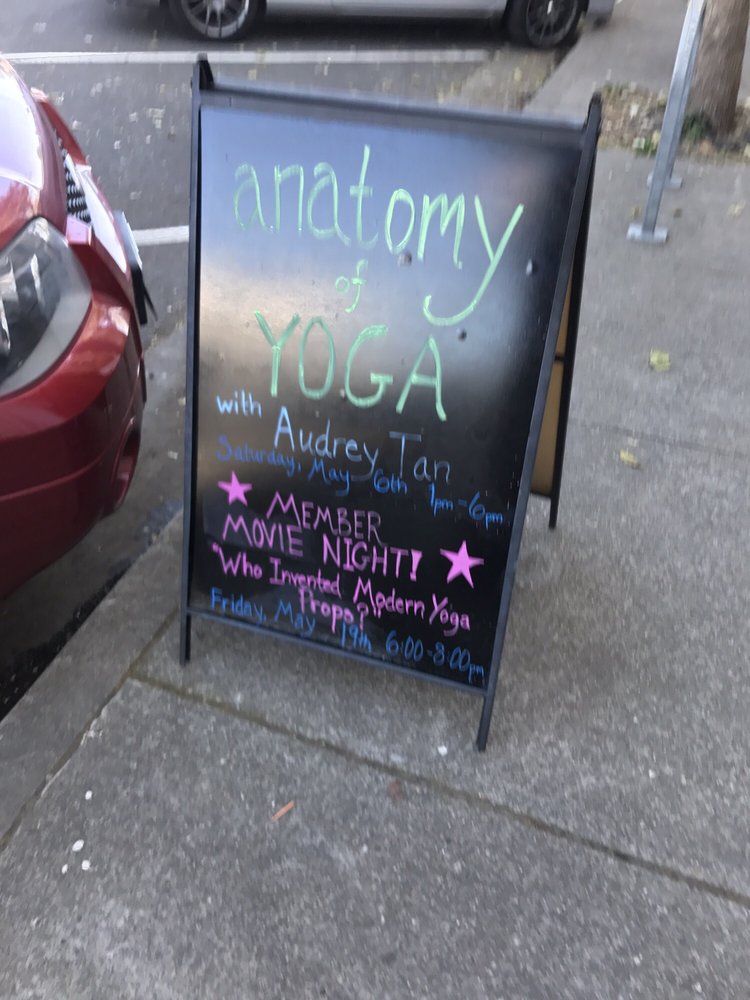 anatomy
of
YOGA
with Audrey Tan
Saturday, May 6th 1pm-6pm
MEMBER
MOVIE NIGHT!
"Who Invented Modern Yoga
Props?"
Friday, May 19th 6:00-8:00pm